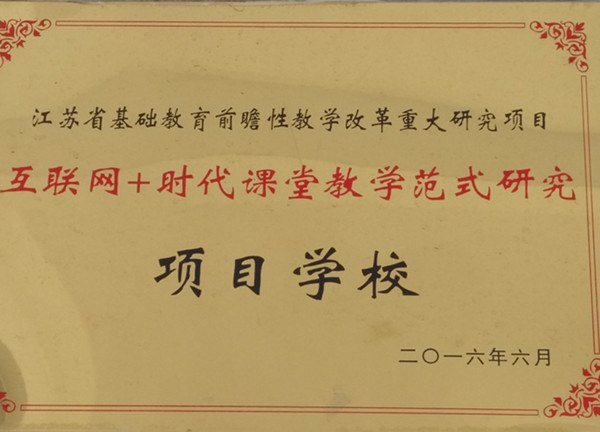 江苏省基础教育前瞻性教学改革重大研究项目
互联网+时代课堂教学范式研究
项目学校
二〇一六年六月